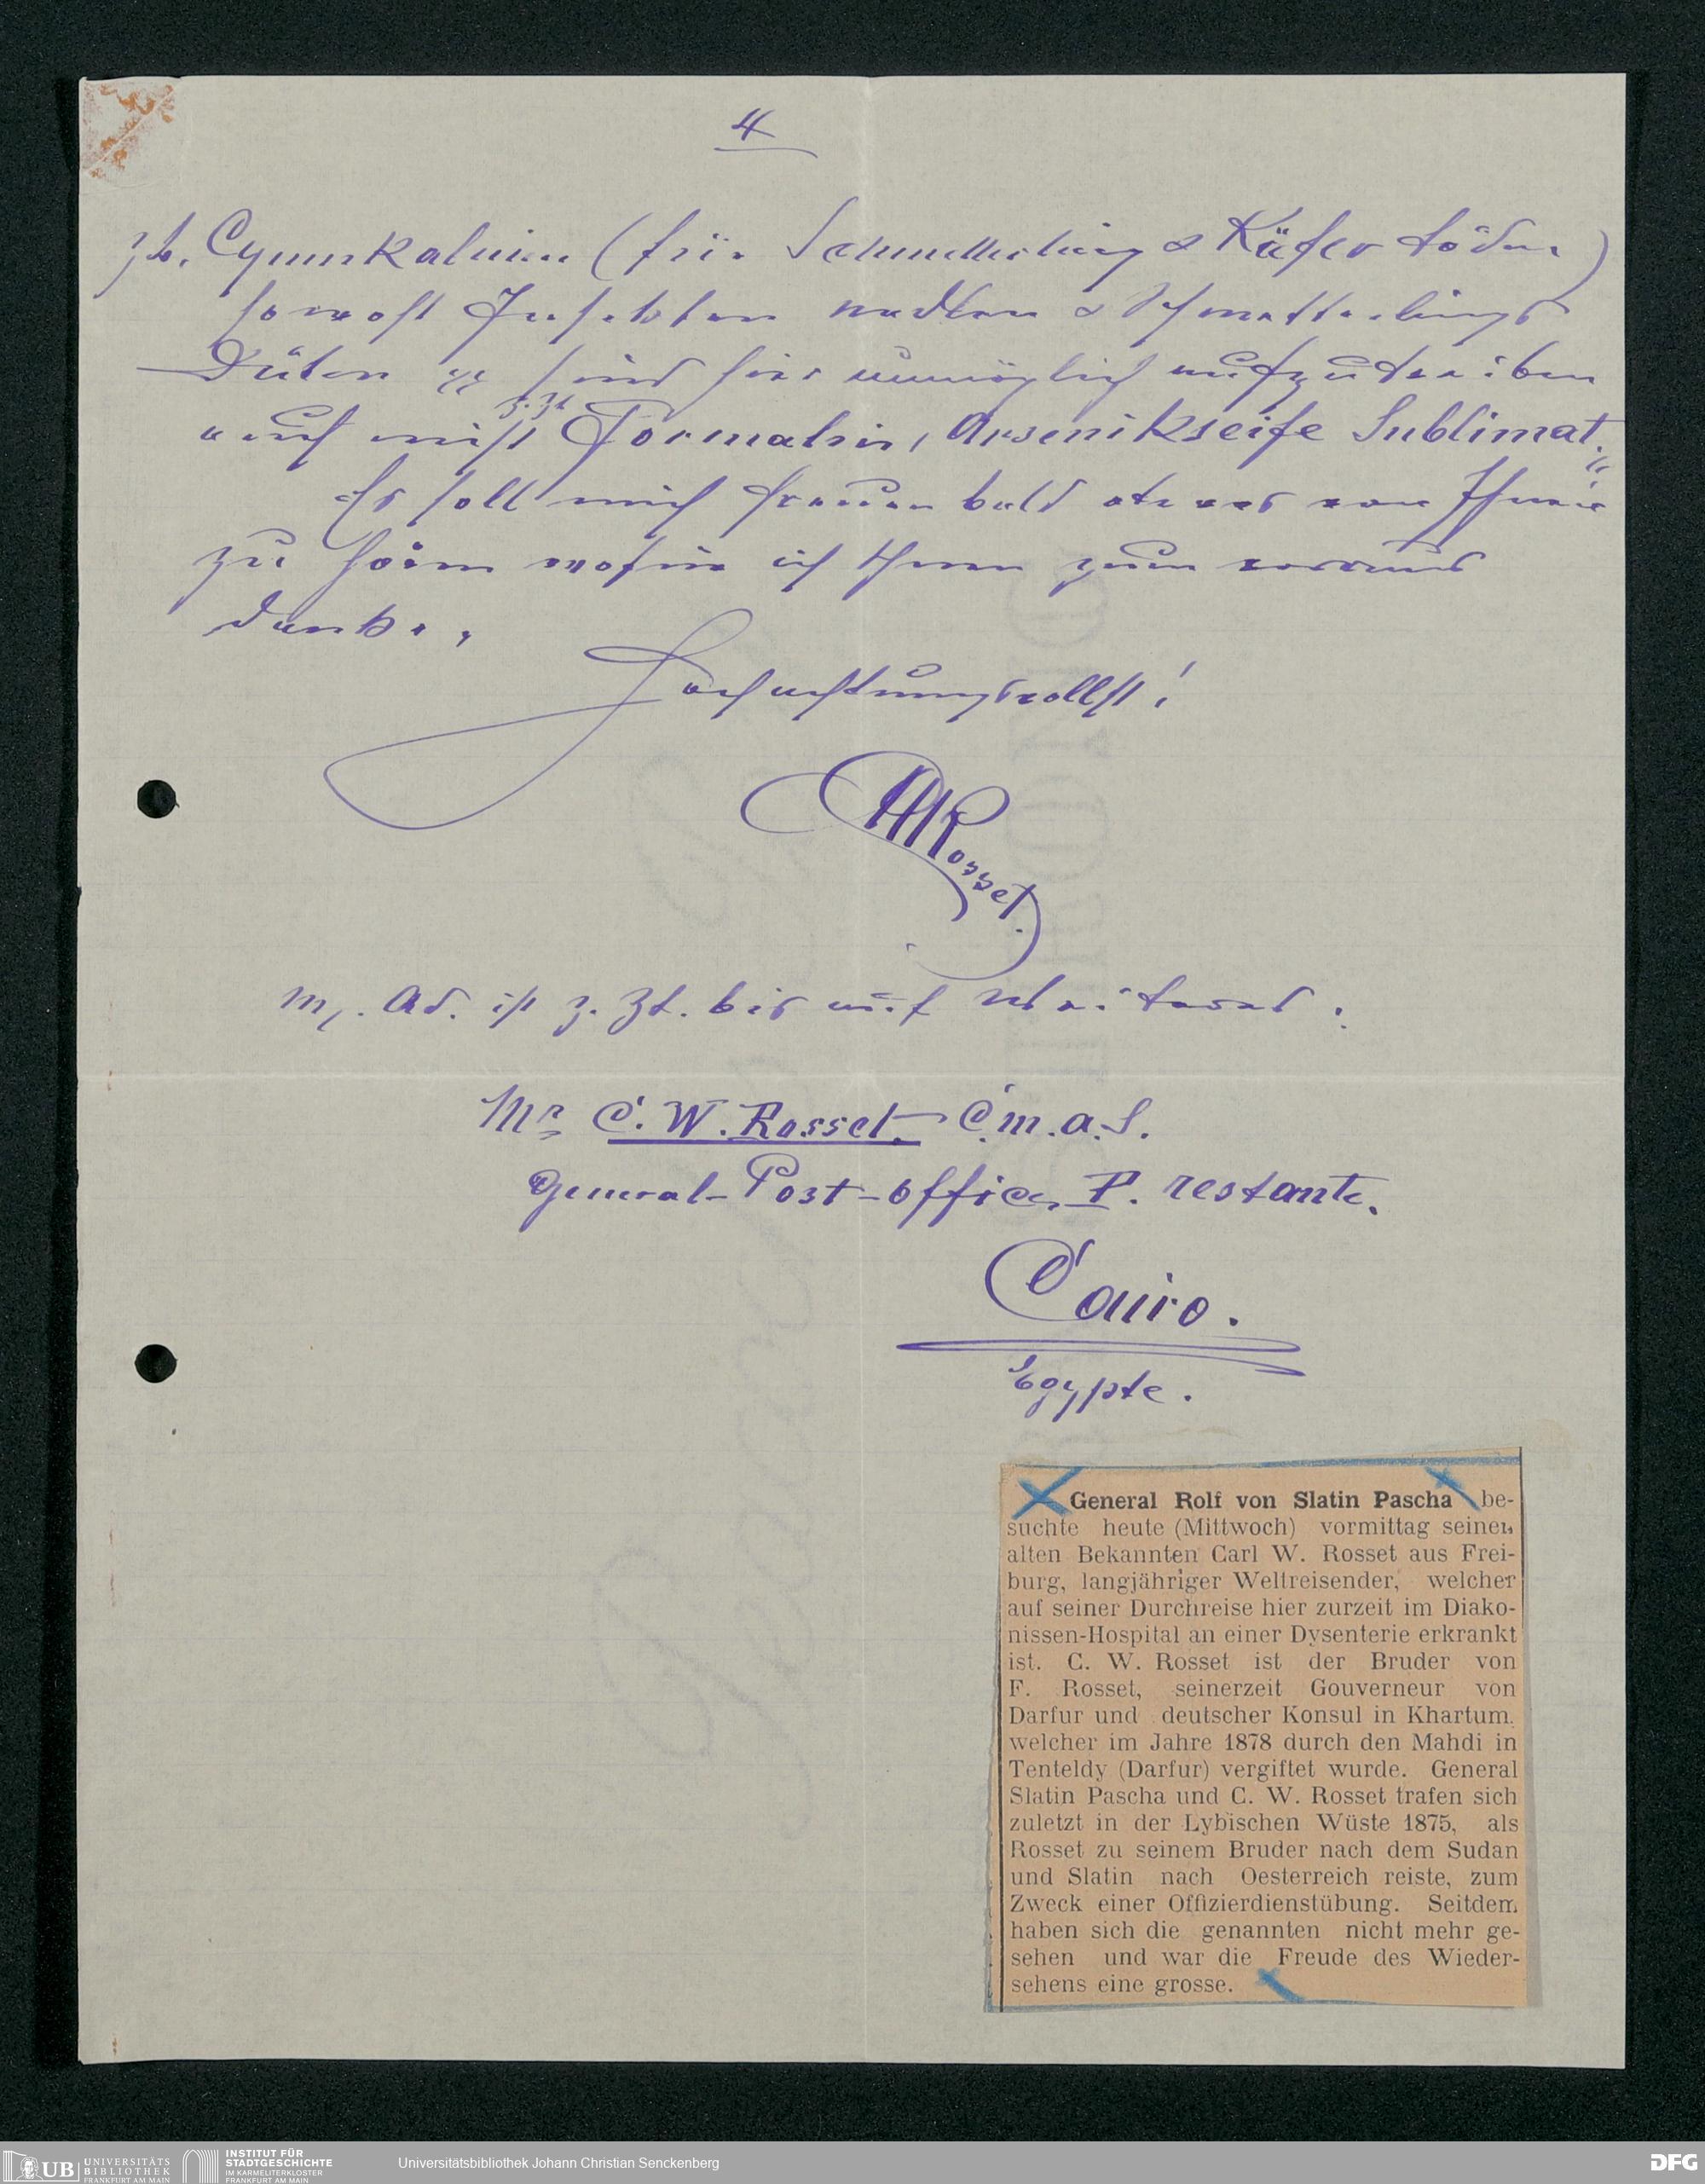 4
zb. Cyannkalium (für Schmetterling & Käfer töden)
sowohl Insekten nadlen & Schmetterlings
Düten sind hier unmöglich aufzutreiben
z. Zt
auch nicht Formalin, Arsenikseife Sublimat.
Es soll mich freuen bald etwas von Ihnen
zu hören wofür ich Ihnen zum voraus
danke,
Hochachtungsvollst!
CWRosset.
m. Ad. ist z. Zt. bis auf Weiteres:
Mr. C. W. Rosset. C.m.a.S.
General-Post-office, P. restante.
Cairo.
Egypte.
General Rolf von Slatin Pascha be-
suchte heute (Mittwoch) vormittag seinen
alten Bekannten Carl W. Rosset aus Frei-
burg, langjähriger Weltreisender, welcher
auf seiner Durchreise hier zurzeit im Diako-
nissen-Hospital an einer Dysenterie erkrankt
ist. C. W. Rosset ist der Bruder von
F. Rosset, seinerzeit Gouverneur von
Darfur und deutscher Konsul in Khartum,
welcher im Jahre 1878 durch den Mahdi in
Tenteldy (Darfur) vergiftet wurde. General
Slatin Pascha und C. W. Rosset trafen sich
zuletzt in der Lybischen Wüste 1875, als
Rosset zu seinem Bruder nach dem Sudan
und Slatin nach Oesterreich reiste, zum
Zweck einer Offizierdienstübung. Seitdem
haben sich die genannten nicht mehr ge-
sehen und war die Freude des Wieder-
sehens eine grosse.
UB UNIVERSITÄTS
BIBLIOTHEK
FRANKFURT AM MAIN
INSTITUT FÜR
STADTGESCHICHTE
IM KARMELITERKLOSTER
FRANKFURT AM MAIN
Universitätsbibliothek Johann Christian Senckenberg
DFG